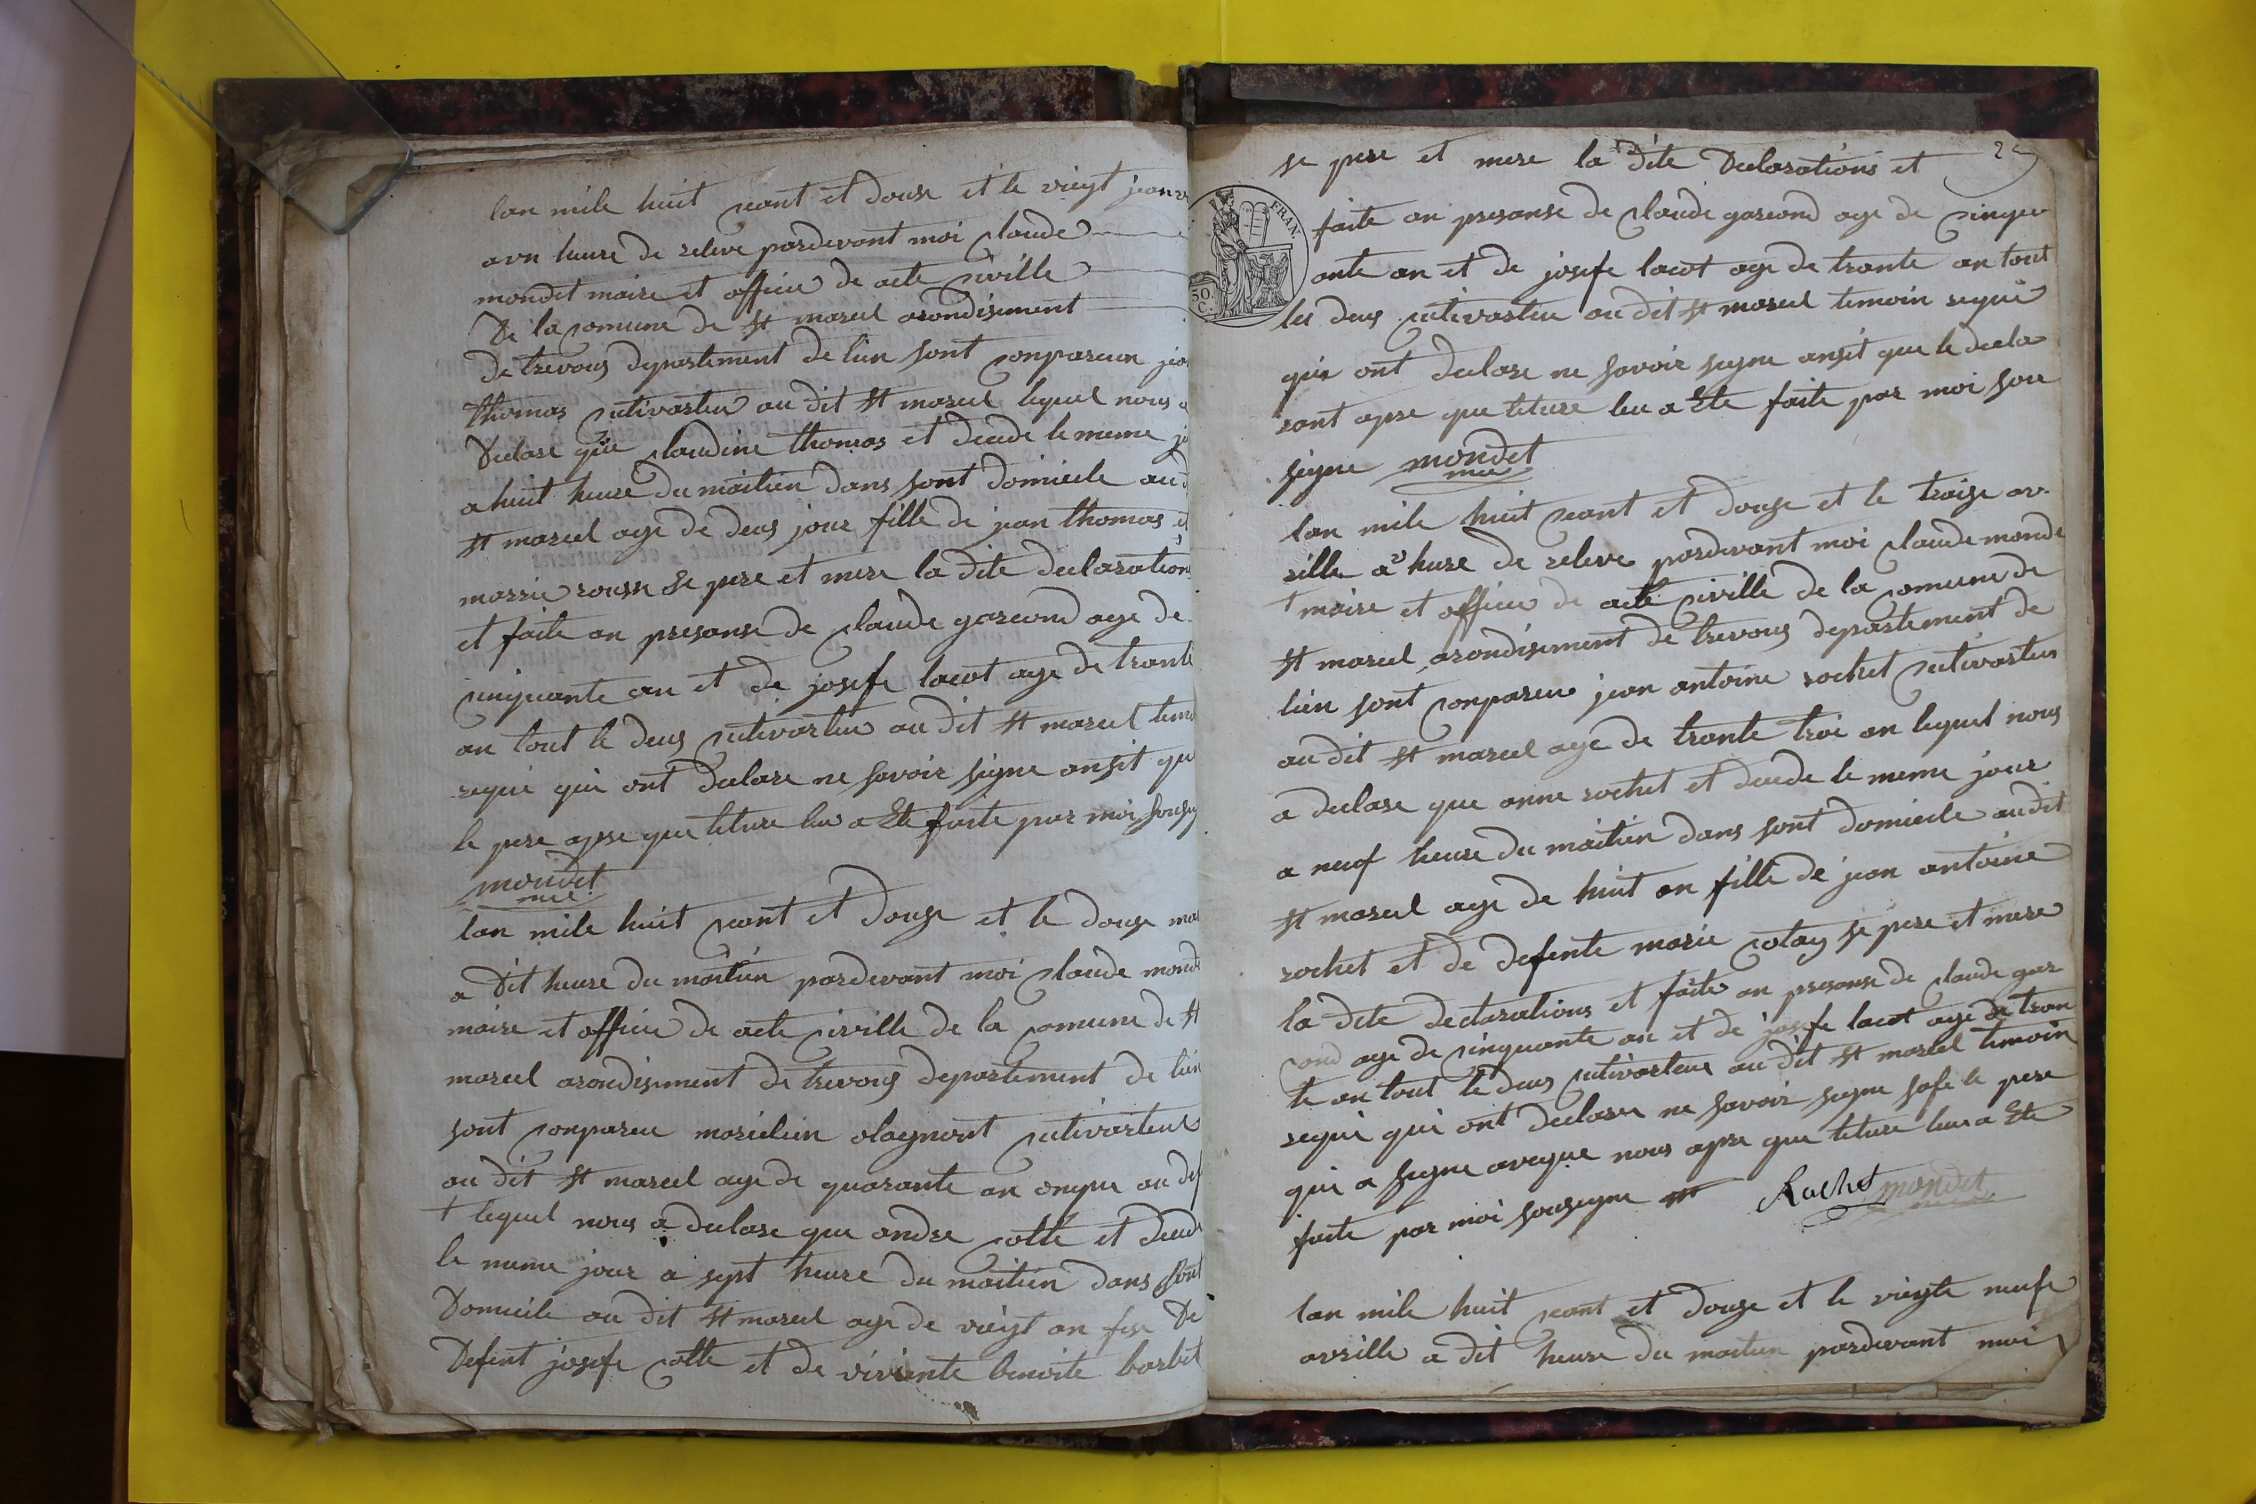 lan mile huit scant et douse et le vieyt jeanv
avn heure de releve pardevant moi claude
mondet maire et officie de acte siville
De la comune de st marsel arondisement
de trevous departement de lien sont conpareu jea
thomas cutivarteu au dit st marsel lequel nous a
Declare que claudine thomas et decede le meme jo
a huit heure du maitien dans sont domicile au d
st marsel age de deus jour fille de jean thomas et
marrie rousse se pere et mere la dite declarations
et faite an presanse de claude garcond age de
cinquante an et de josefe lacot age de trante
an tout le deus cutivarteu au dit st marsel temo
requi qui ont declare ne savoir signe ansit que
le pere apre que leture leu a Ete faite par moi sousig
mondet
mre
lan mile huit scant et douse et le douse mar
a Dit heure du maitien pardevant moi claude monde
maire et officie de acte siville de la comune de st
marsel arondisement de trevous departement de lien
sont conpareu marselien olagnont cutivarteur
au dit st marsel age de quarante an onque au def
t lequel nous a declare que andre cotte et decede
le meme jour a sept heure du maitien dans sont
Domicile au dit st marsel age de vieyt an fise De
Defent josefe cotte et de vivante benoite barbet
25
se pere et mere la dite Declarations et
FRAN.
50.
C.
faite an presanse de claude garcond age de cinqu
ante an et de josefe lacot age de trante an tout
les deus cutivarteu au dit st marsel temoin requi
qui ont declare ne savoir signe ansit que le decla
rant apre que leture leu a Ete faite par moi sou
signe mondet
mre
lan mile huit scant et douse et le traise av
rille a 2 hure de releve pardevant moi claude monde
t maire et officie de acte siville de la comune de
st marsel arondisement de trevous departement de
lien sont conpareu jean antoine rochet cutivarteur
au dit st marsel age de trante troi an lequel nous
a declare que anne rochet et decede le meme jour
a neuf heure du maitien dans sont domicile au dit
st marsel age de huit an fille de jean antoine
rochet et de defente marie cotay se pere et mere
la dite declarations et faite an presanse de claude gar
cond age de cinquante an et de josefe lacot age de tran
te an tout le deus cutivarteur au dit st marsel temoin
requi qui ont declare ne savoir signe safe le pere
qui a signe aveque nous apre que leture leu a Ete
faite par moi sousigne
Rochet mondet
mre
lan mile huit scant et douse et le vieyte neufe
avrille a dit heure du maitien pardevant moi